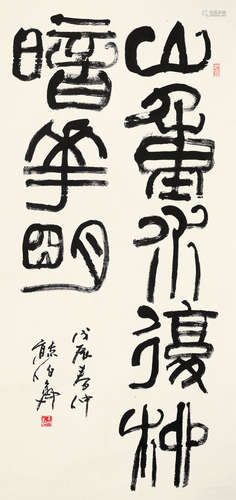 山重水復柳
暗華明
戊辰春仲
熊伯齊